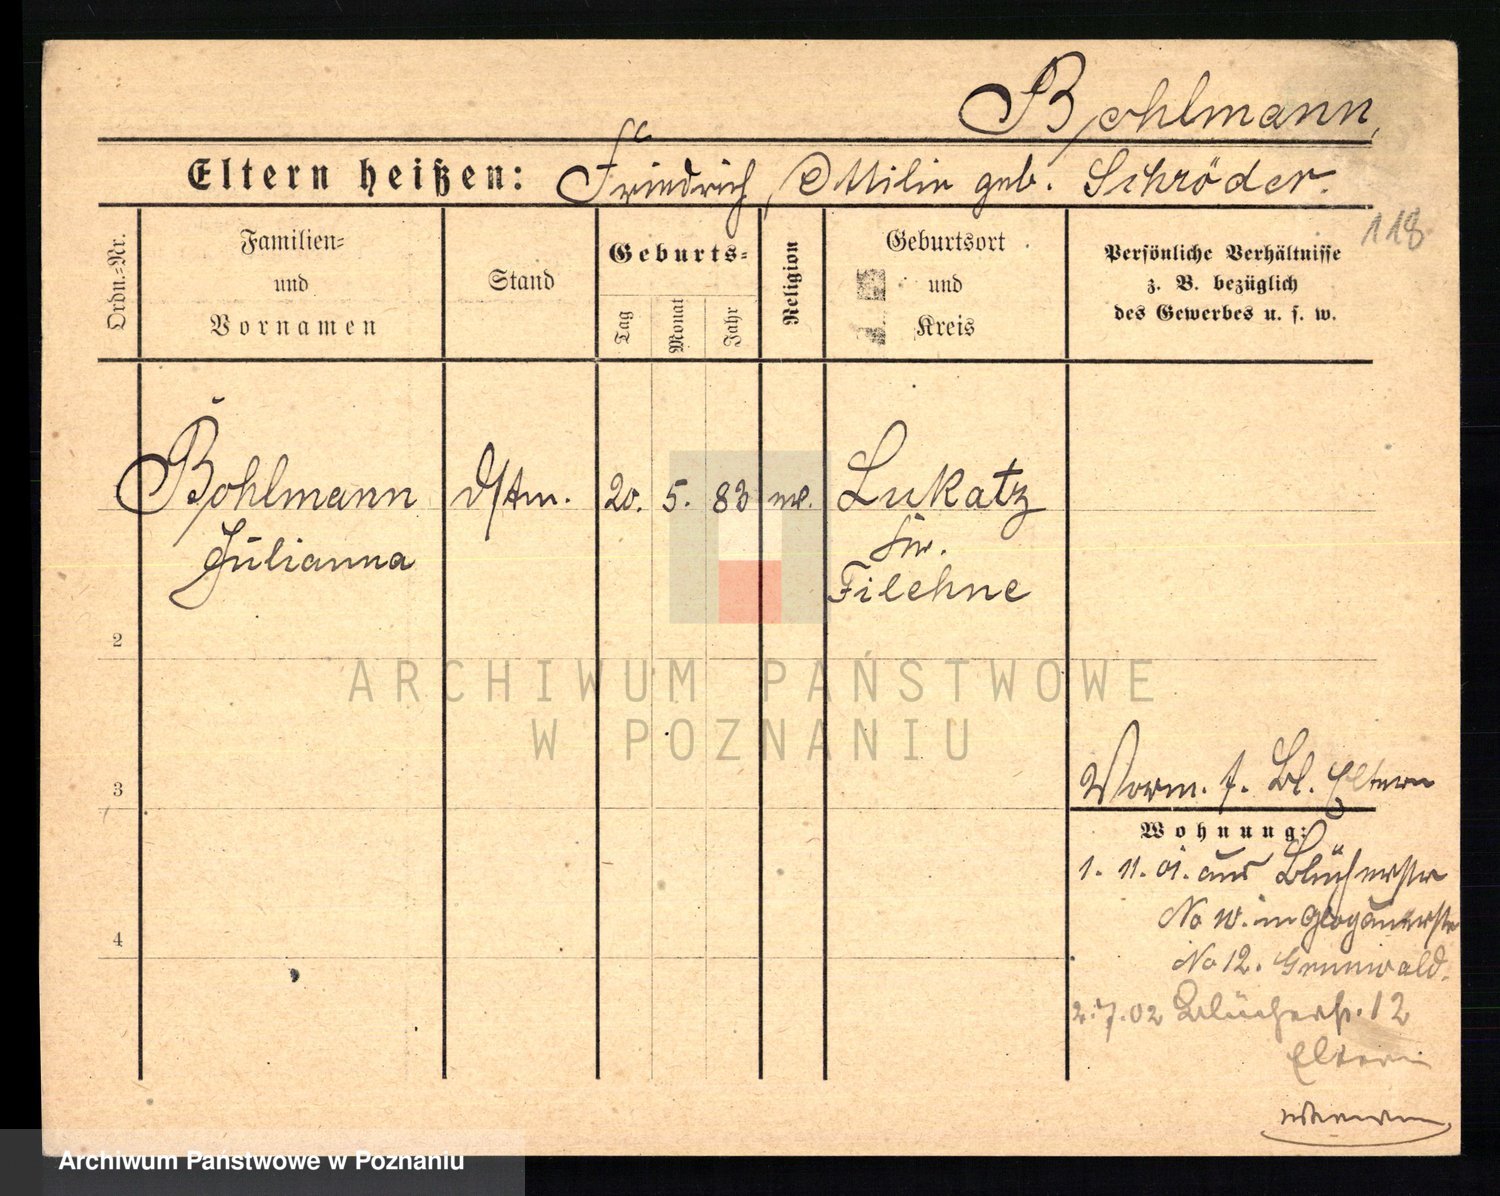 Bohlmann,
Eltern heißen: Friedrich, Ottilie geb. Schröder.
118
Ordn.=Nr.
Familien=
und
Vornamen
Stand
Geburts=
Tag
Monat
Jahr
Religion
Geburtsort
und
Kreis
Persönliche Verhältnisse
z. B. bezüglich
des Gewerbes u. s. w.
Bohlmann 20. 5. 83 Lukatz
Julianna
Filehne
2
ARCHIWUM PAŃSTWOWE
W POZNANIU
3
Eltern
Wohnung:
1. 11. 01. aus Blücherstr
No 10. in Glogauerstr
No 12. Grunwald.
2.7.02 Blücherstr. 12
Eltern
4
Archiwum Państwowe w Poznaniu